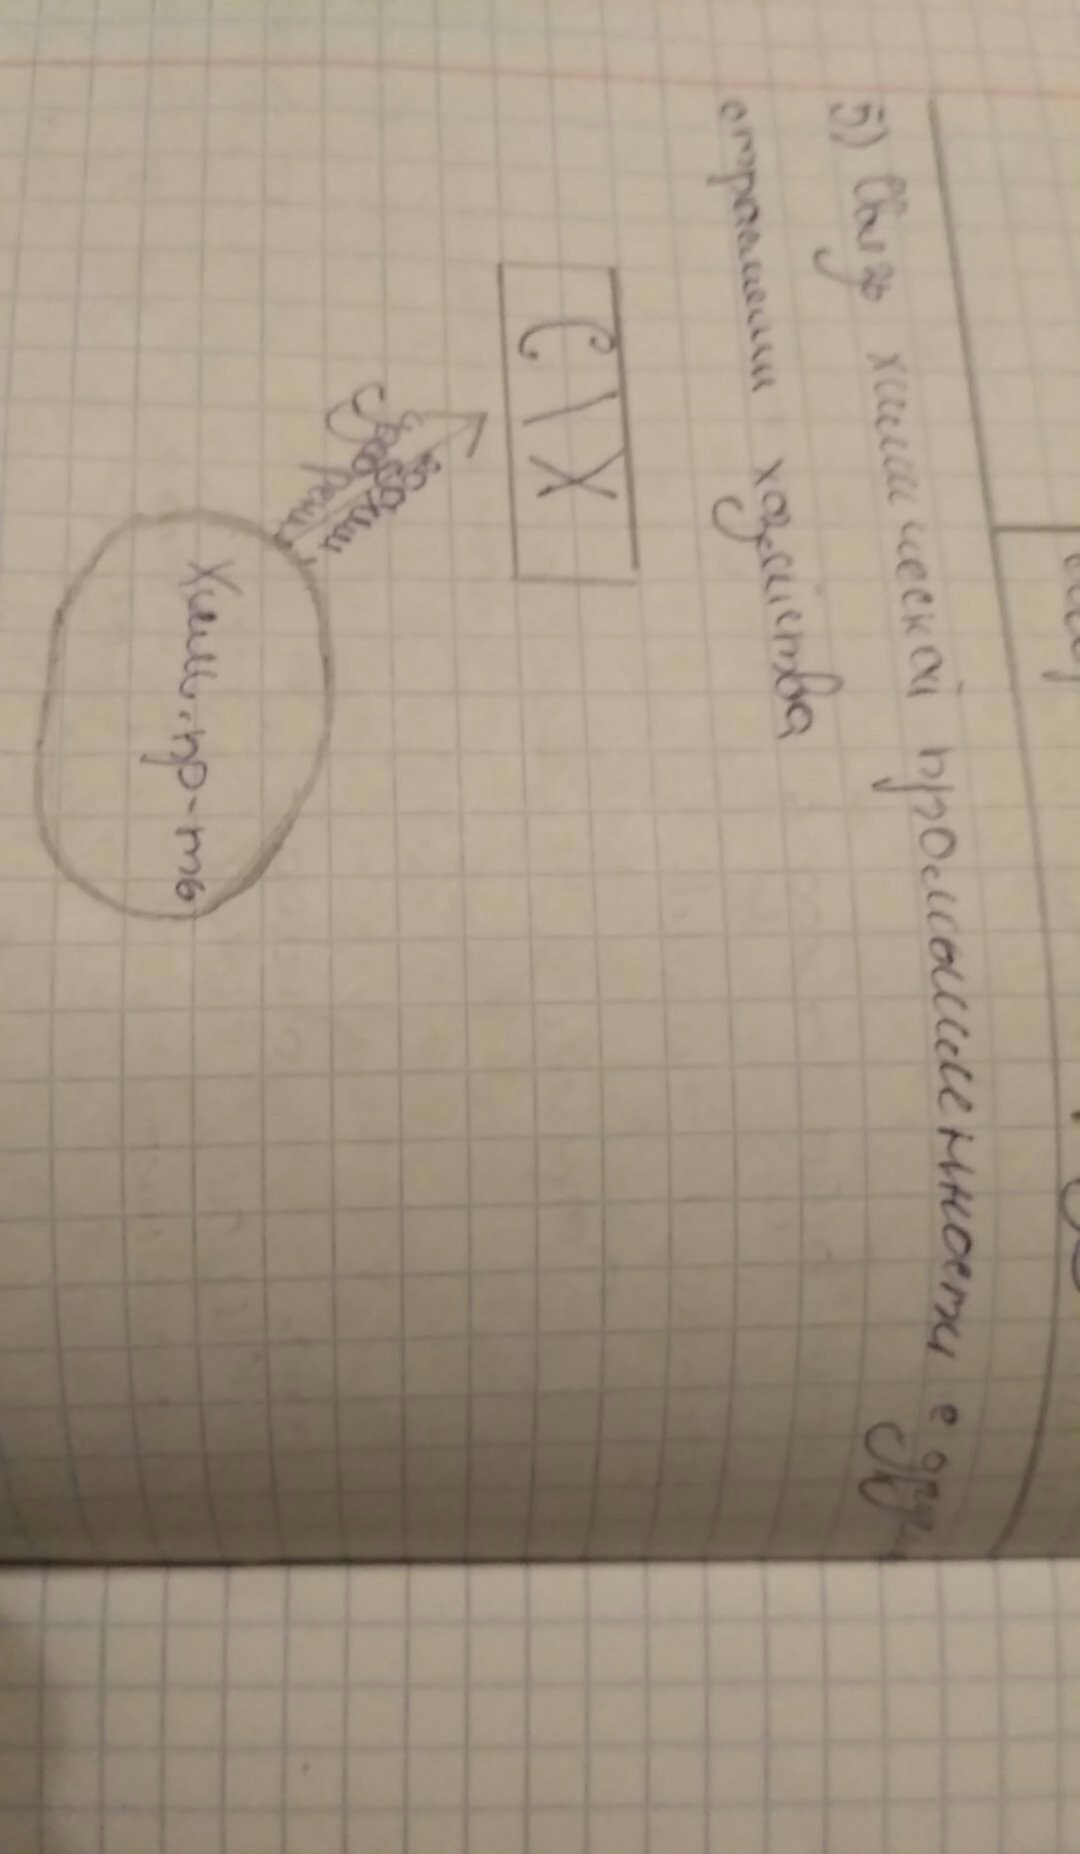 5) Связь химической промышленности с друг.
отраслями хозяйства
С\Х
Удобрения
Хим. пр-ть